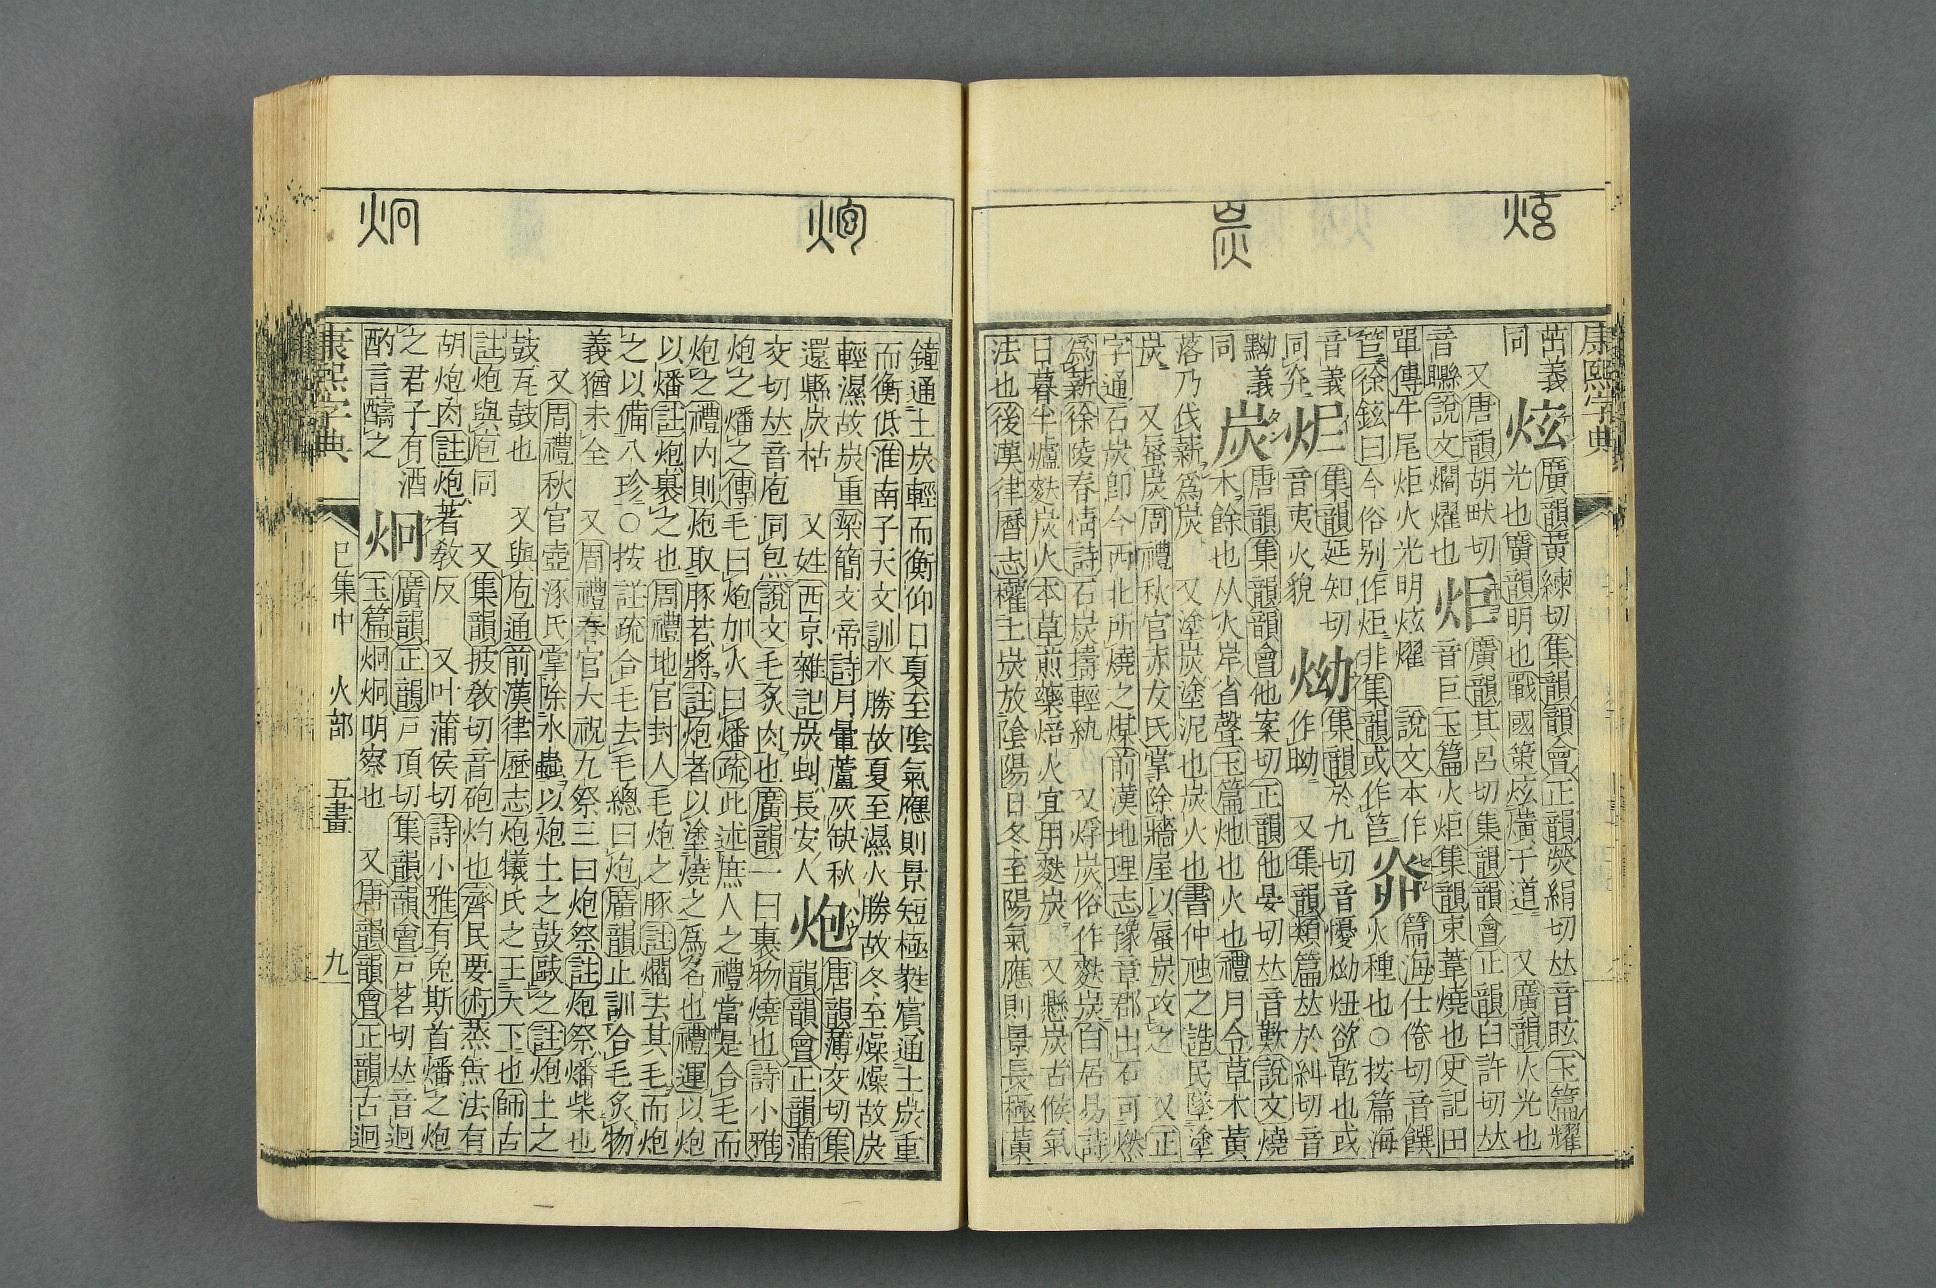 炫
炭
康熙字典
茁義炫廣韻黃練切集韻韻會正韻熒絹切𠀤音眩玉篇耀
同光也廣韻明也戰國策炫熿于道 又廣韻火光也
又唐韻胡畎切炬廣韻其呂切集韻韻會正韻臼許切𠀤
音㯠說文爓燿也音巨玉篇火炬集韻束葦燒也史記田
單傳牛尾炬火光明炫燿 說文本作㷅篇海仕倦切音饌
苣徐鉉曰今俗別作炬非集韻或作苣火種也○按篇海
音義炟集韻延知切㶭集韻於九切音懮㶭妞欲乾也或
同㶣音夷火貌作㶭 又集韻類篇𠀤於糾切音
黝義炭唐韻集韻韻會他案切正韻他晏切𠀤音歎說文燒
同木餘也从火岸省聲玉篇灺也火也禮月令草木黃
落乃伐薪爲炭 又塗炭塗泥也炭火也書仲虺之誥民墜塗
炭 又蜃炭周禮秋官赤犮氏掌除牆屋以蜃炭攻之 又正
字通石炭卽今西北所燒之煤前漢地理志豫章郡出石可燃
爲薪徐陵春情詩石炭擣輕紈 又烰炭俗作麩炭白居易詩
日暮半爐麩炭火本草煎藥焙火宜用麩炭 又懸炭古候氣
法也後漢律曆志權土炭放陰陽日冬至陽氣應則景長極黃
炮
炯
鐘通土炭輕而衡仰日夏至陰氣應則景短極蕤賓通土炭重
而衡低淮南子天文訓水勝故夏至濕火勝故冬至燥燥故炭
輕濕故炭重梁簡文帝詩月暈蘆灰缺秋炮唐韻薄交切集
還縣炭枯 又姓西京雜記炭虯長安人韻韻會正韻蒲
交切𠀤音庖同炰說文毛炙肉也廣韻一曰裹物燒也詩小雅
炮之燔之傳毛曰炮加火曰燔疏此述庶人之禮當是合毛而
炮之禮內則炮取豚若將註炮者以塗燒之爲名也禮運以炮
以燔註炮裹之也周禮地官封人毛炮之豚註爓去其毛而炮
之以備八珍○按註疏合毛去毛總曰炮廣韻止訓合毛炙物
義猶未全 又周禮春官大祝九祭三曰炮祭註炮祭燔柴也
又周禮秋官壺涿氏掌除水蟲以炮土之鼓敺之註炮土之
鼓瓦鼓也 又與庖通前漢律歷志炮犧氏之王天下也師古
註炮與庖同 又集韻披敎切音砲灼也齊民要術蒸缹法有
胡炮肉註炮著敎反 又叶蒲侯切詩小雅有兔斯首燔之炮
之君子有酒炯廣韻正韻戸頂切集韻韻會戸茗切𠀤音迥
酌言醻之玉篇炯炯明察也 又唐韻韻會正韻古迥
康熙字典
巳集中 火部 五畫
九